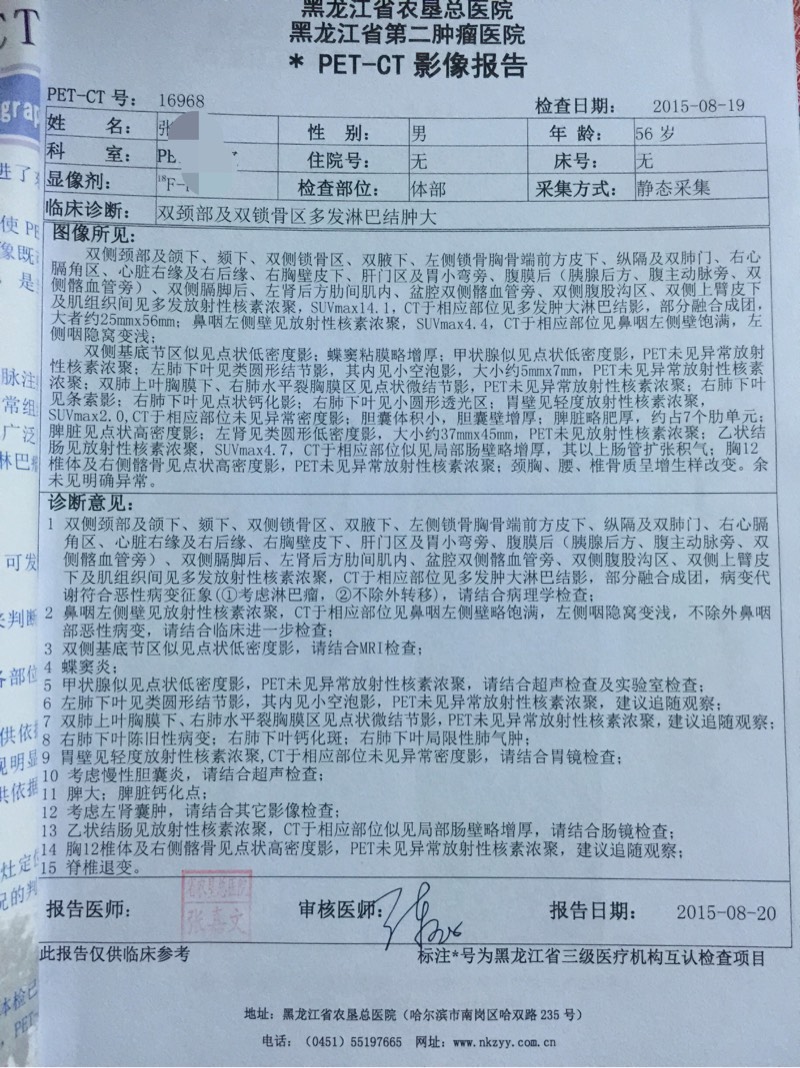 黑龙江省农垦总医院
黑龙江省第二肿瘤医院
* PET-CT 影像报告
PET-CT 号: 16968 检查日期: 2015-08-19
姓 名: 张 性 别: 男 年 龄: 56 岁
科 室: 住院号: 无 床号: 无
显像剂: 18F- 检查部位: 体部 采集方式: 静态采集
临床诊断: 双颈部及双锁骨区多发淋巴结肿大
图像所见:
双侧颈部及颌下、颏下、双侧锁骨区、双腋下、左侧锁骨胸骨端前方皮下、纵隔及双肺门、右心
膈角区、心脏右缘及右后缘、右胸壁皮下、肝门区及胃小弯旁、腹膜后(胰腺后方、腹主动脉旁、双
侧髂血管旁)、双侧膈脚后、左肾后方肋间肌内、盆腔双侧髂血管旁、双侧腹股沟区、双侧上臂皮下
及肌组织间见多发放射性核素浓聚,SUVmax14.1,CT于相应部位见多发肿大淋巴结影,部分融合成团,
大者约25mmx56mm;鼻咽左侧壁见放射性核素浓聚,SUVmax4.4,CT于相应部位见鼻咽左侧壁饱满,左
侧咽隐窝变浅;
双侧基底节区似见点状低密度影;蝶窦粘膜略增厚;甲状腺似见点状低密度影,PET未见异常放射
性核素浓聚;左肺下叶见类圆形结节影,其内见小空泡影,大小约5mmx7mm,PET未见异常放射性核素
浓聚;双肺上叶胸膜下、右肺水平裂胸膜区见点状微结节影,PET未见异常放射性核素浓聚;右肺下叶
见条索影;右肺下叶见点状钙化影;右肺下叶见小圆形透光区;胃壁见轻度放射性核素浓聚,
SUVmax2.0,CT于相应部位未见异常密度影;胆囊体积小,胆囊壁增厚;脾脏略肥厚,约占7个肋单元;
脾脏见点状高密度影;左肾见类圆形低密度影,大小约37mmx45mm,PET未见放射性核素浓聚;乙状结
肠见放射性核素浓聚,SUVmax4.7,CT于相应部位似见局部肠壁略增厚,其以上肠管扩张积气;胸12
椎体及右侧髂骨见点状高密度影,PET未见异常放射性核素浓聚;颈胸、腰、椎骨质呈增生样改变。余
未见明确异常。
诊断意见:
1 双侧颈部及颌下、颏下、双侧锁骨区、双腋下、左侧锁骨胸骨端前方皮下、纵隔及双肺门、右心膈
角区、心脏右缘及右后缘、右胸壁皮下、肝门区及胃小弯旁、腹膜后(胰腺后方、腹主动脉旁、双
侧髂血管旁)、双侧膈脚后、左肾后方肋间肌内、盆腔双侧髂血管旁、双侧腹股沟区、双侧上臂皮
下及肌组织间见多发放射性核素浓聚,CT于相应部位见多发肿大淋巴结影,部分融合成团,病变代
谢符合恶性病变征象(①考虑淋巴瘤,②不除外转移),请结合病理学检查;
2 鼻咽左侧壁见放射性核素浓聚,CT于相应部位见鼻咽左侧壁略饱满,左侧咽隐窝变浅,不除外鼻咽
部恶性病变,请结合临床进一步检查;
3 双侧基底节区似见点状低密度影,请结合MRI检查;
4 蝶窦炎;
5 甲状腺似见点状低密度影,PET未见异常放射性核素浓聚,请结合超声检查及实验室检查;
6 左肺下叶见类圆形结节影,其内见小空泡影,PET未见异常放射性核素浓聚,建议追随观察;
7 双肺上叶胸膜下、右肺水平裂胸膜区见点状微结节影,PET未见异常放射性核素浓聚,建议追随观察;
8 右肺下叶陈旧性病变;右肺下叶钙化斑;右肺下叶局限性肺气肿;
9 胃壁见轻度放射性核素浓聚,CT于相应部位未见异常密度影,请结合胃镜检查;
10 考虑慢性胆囊炎,请结合超声检查;
11 脾大;脾脏钙化点;
12 考虑左肾囊肿,请结合其它影像检查;
13 乙状结肠见放射性核素浓聚,CT于相应部位似见局部肠壁略增厚,请结合肠镜检查;
14 胸12椎体及右侧髂骨见点状高密度影,PET未见异常放射性核素浓聚,建议追随观察;
15 脊椎退变。
报告医师: 审核医师: 报告日期: 2015-08-20
此报告仅供临床参考 标注*号为黑龙江省三级医疗机构互认检查项目
地址:黑龙江省农垦总医院(哈尔滨市南岗区哈双路 235 号)
电话:(0451)55197665 网址:www.nkzyy.com.cn